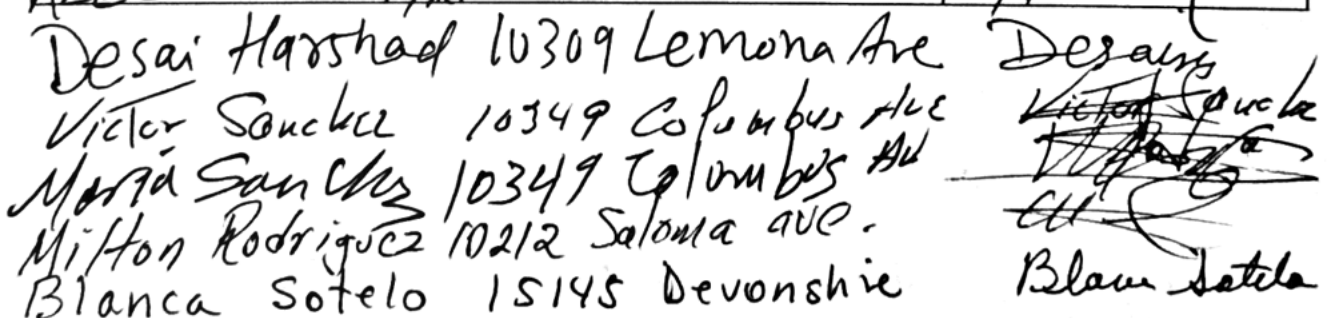 Desai Harshad 10309 Lemona Ave Desai
Victor Sanchez 10349 Columbus Ave Victor Sanchez
Maria Sanchez 10349 Columbus Av
Milton Rodriguez 10212 Saloma ave.
Blanca Sotelo 15145 Devonshie Blanca Sotelo